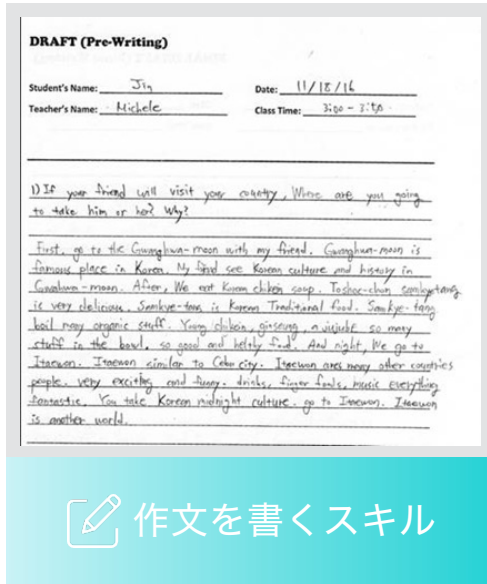 DRAFT (Pre-Writing)
Student's Name: Jin Date: 11/18/16
Teacher's Name: Michele Class Time: 3:00 - 3:50
1) If your friend will visit your country, Where are you going
to take him or her? Why?
First, go to the Gwanghwa-moon with my friend. Gwanghwa-moon is
famous place in Korea. My frind see Korean culture and history in
Gwanhwa-moon. After, We eat Korean chiken soup. Toshoc-chun samkyetang
is very delicious. Samkye-tang is Korean Traditional food. Samkye-tang
boil many organic stuff. Young chikin, ginseung, a jujube so many
stuff in the bowl. so good and helthy food. And night, We go to
Itaewon. Itaewon similar to Cebu city. Itaewon ares many other countries
people. very exciting and funny. drinks, finger foods, music everything
fantastic. You take Korean midnight culture. go to Itaewon. Itaewon
is another world.
作文を書くスキル